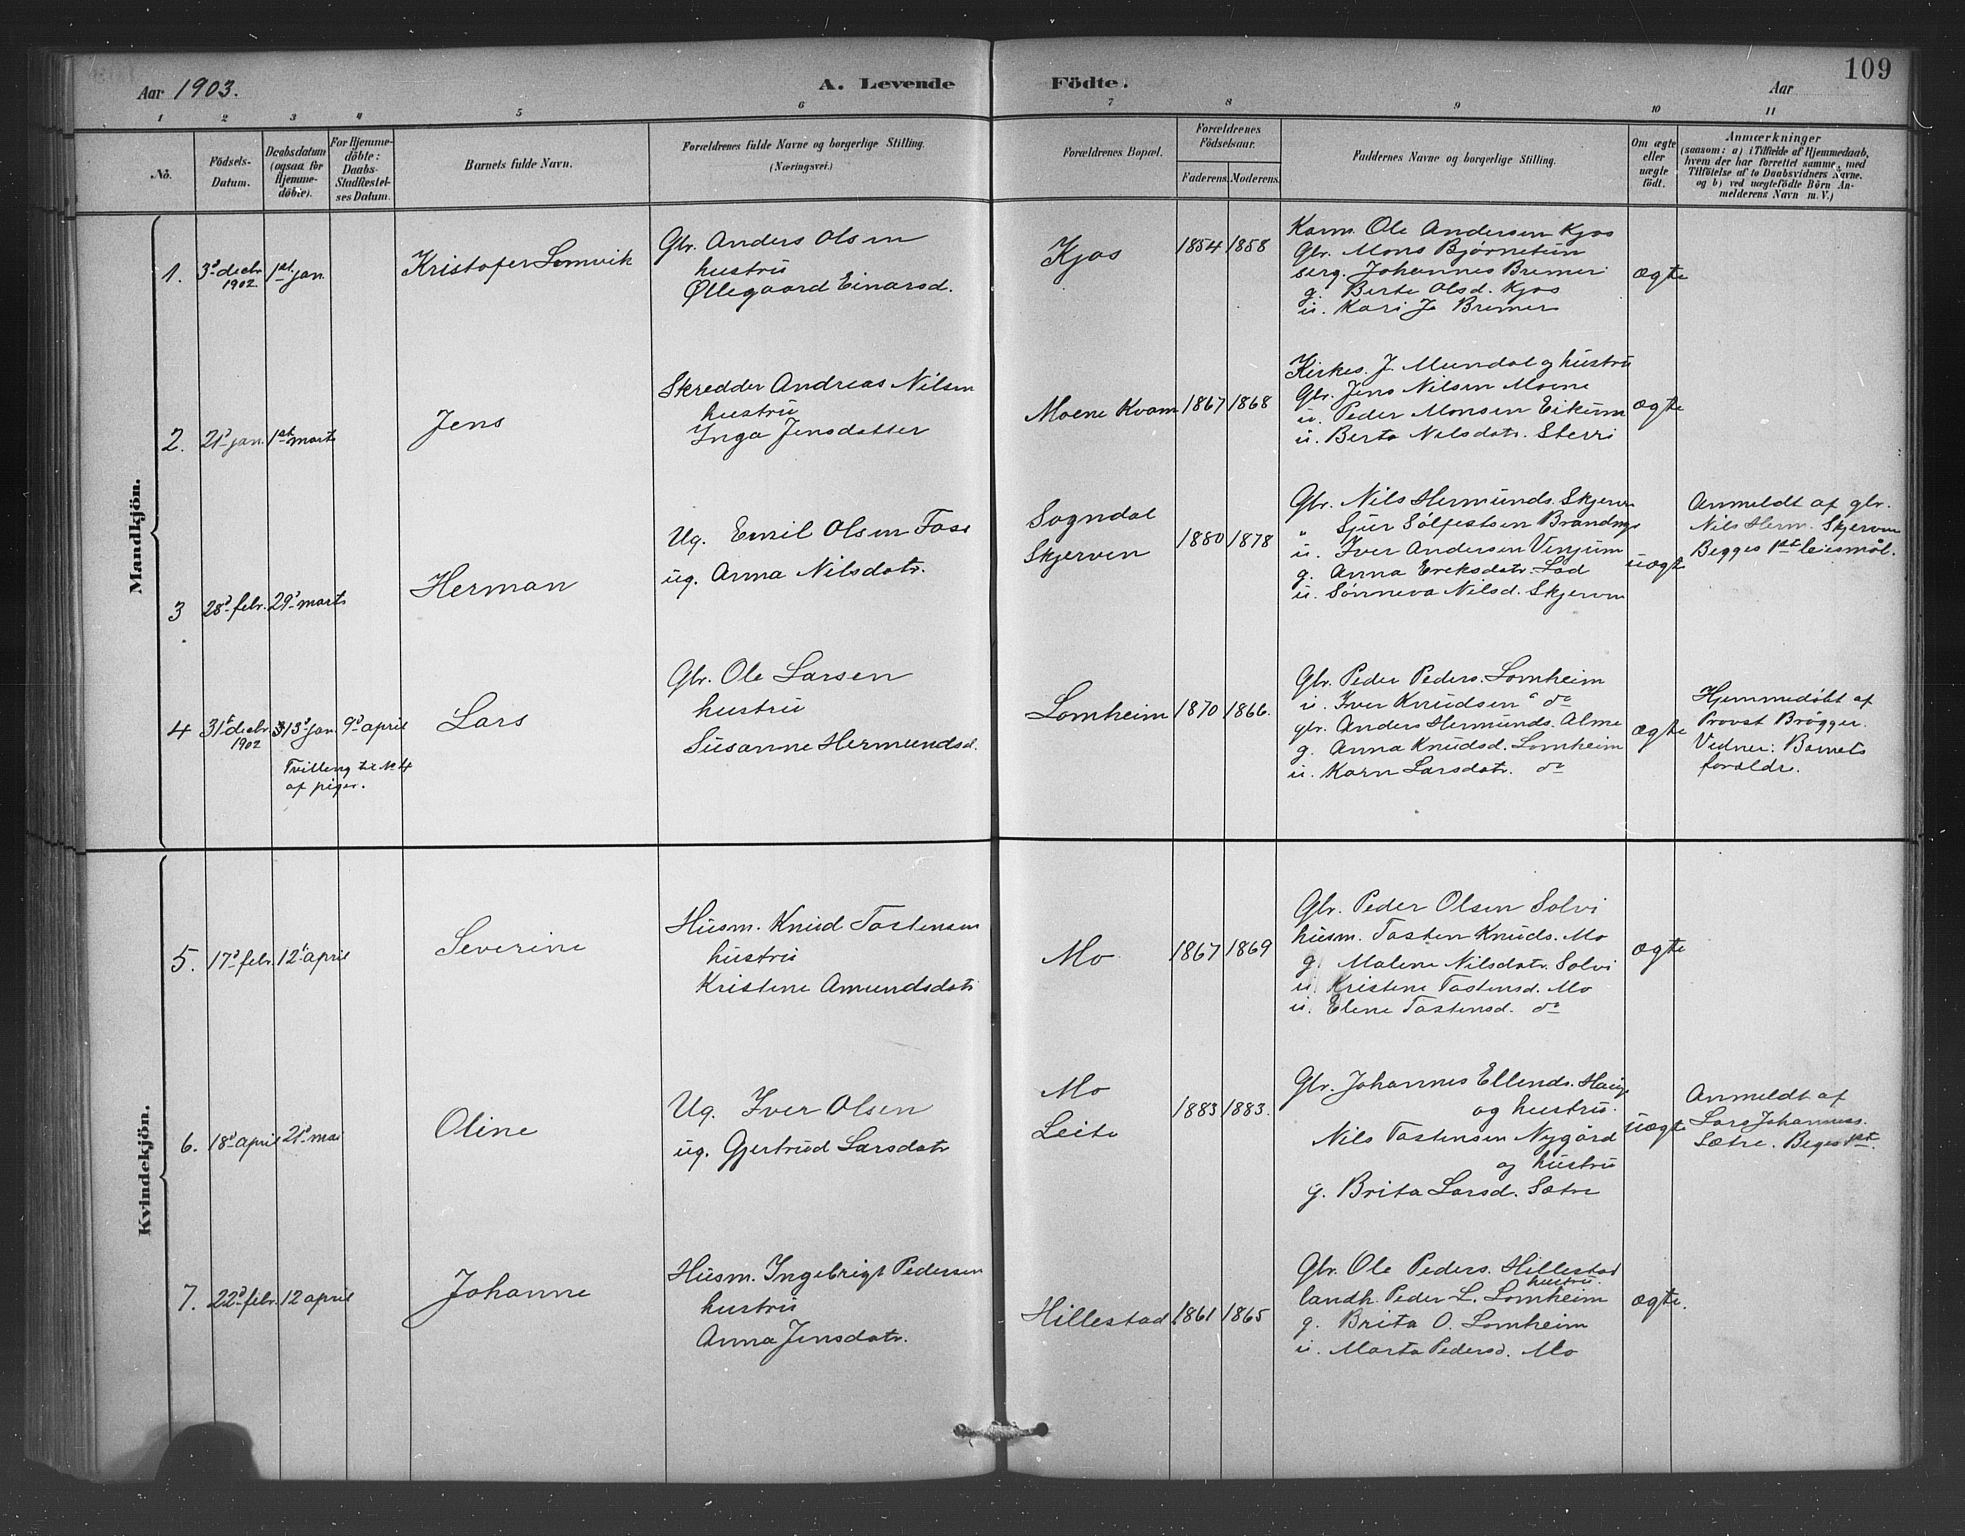 109
Aar 1903.
A. Levende
Födte.
Aar
1 2 3 4 5 6 7 8 9 10 11
No.
Födsels-
Datum.
Daabsdatum
(ogsaa for
Hjemme-
döbte).
For Hjemme-
döbte:
Daabs-
Stadfæstel-
ses Datum.
Barnets fulde Navn.
Forældrenes fulde Navne og borgerlige Stilling.
(Næringsvei.)
Forældrenes Bopæl.
Forældrenes
Födselsaar.
Faderens. Moderens.
Faddernes Navne og borgerlige Stilling.
Om ægte
eller
uægte
födt.
Anmærkninger
(saasom: a) i Tilfælde af Hjemmedaab,
hvem der har forrettet samme, med
Tilföielse af to Daabsvidners Navne.
og b) ved uægtefödte Börn An-
melderens Navn m. V.)
Mandkjön.
1.
3d decbr
1902
1st jan
Kristofer Lomvik
Gbr. Anders Olsen
hustru
Øllegaard Einarsd.
Kjos
1854 1858
Karn. Ole Andersen Kjos
Gbr. Mons Bjørnetun
serg. Johannes Bremer
g. Berte Olsd. Kjos
u. Kari J. Bremer
ægte
2.
21d jan.
1st marts
Jens
Skredder Andreas Nilsen
hustru
Inga Jensdatter
Moene Kvam
1867 1868
Kirkes. J. Mundal og hustru
Gbr. Jens Nilsen Moene
u. Peder Monsen Eikum
u. Berta Nilsdatr. Sterri
ægte
3
28d febr.
29d marts
Herman
Ug. Emil Olsen Foss
ug. Anna Nilsdatr.
Sogndal
Skjerven
1880 1878
Gbr. Nils Hermunds. Skjerven
" Sjur Sølfestsen
u. Iver Andersen Venjum
g. Anna Ereksdatr. Lad
u. Sønneva Nilsd. Skjerven
uægte
Anmeldt af gbr.
Nils Herm. Skjerven
Begges 1ste leiesmål.
4
31te decbr
1902
13d jan
9d april
Tvilling til No 4
af piger.
Lars
Gbr. Ole Larsen
hustru
Susanne Hermundsd.
Lomheim
1870 1866.
Gbr. Peder Peders. Lomheim
u. Iver Knudsen do
gbr. Anders Hermunds. Alme
g. Anna Knudsd. Lomheim
u. Karn Larsdatr. do
ægte
Hjemmedøbt af
Provst Brøgger.
Vidner: Barnets
forældre.
Kvindekjön.
5.
17d febr.
12te april
Severine
Husm. Knud Tostensen
hustru
Kristine Amundsdatr
Mo
1867 1869
Gbr. Peder Olsen Solvi
husm. Tosten Knuds. Mo
g. Malene Nilsdatr. Solvi
u. Kristine Tostensd. Mo
u. Eline Tostensd. do
ægte
6.
18d april
21d mai
Oline
Ug. Iver Olsen
ug. Gjertrud Larsdatr
Mo
Leite
1883 1883.
Gbr. Johannes Ellends. Hauge
og hustru.
Nils Tostensen Nygård
og hustru
g. Brita Larsd. Sætre
uægte
Anmeldt af
Lars Johanness.
Sætre. Beges 1ste.
7.
22d febr.
12 april
Johanne
Husm. Ingebrigt Pedersen
hustru
Anna Jensdatr.
Hillestad
1861 1865
Gbr. Ole Peders. Hillestad
hustru.
landh. Peder L. Lomheim
g. Brita O. Lomheim
u. Marta Pedersd. Mo
ægte.